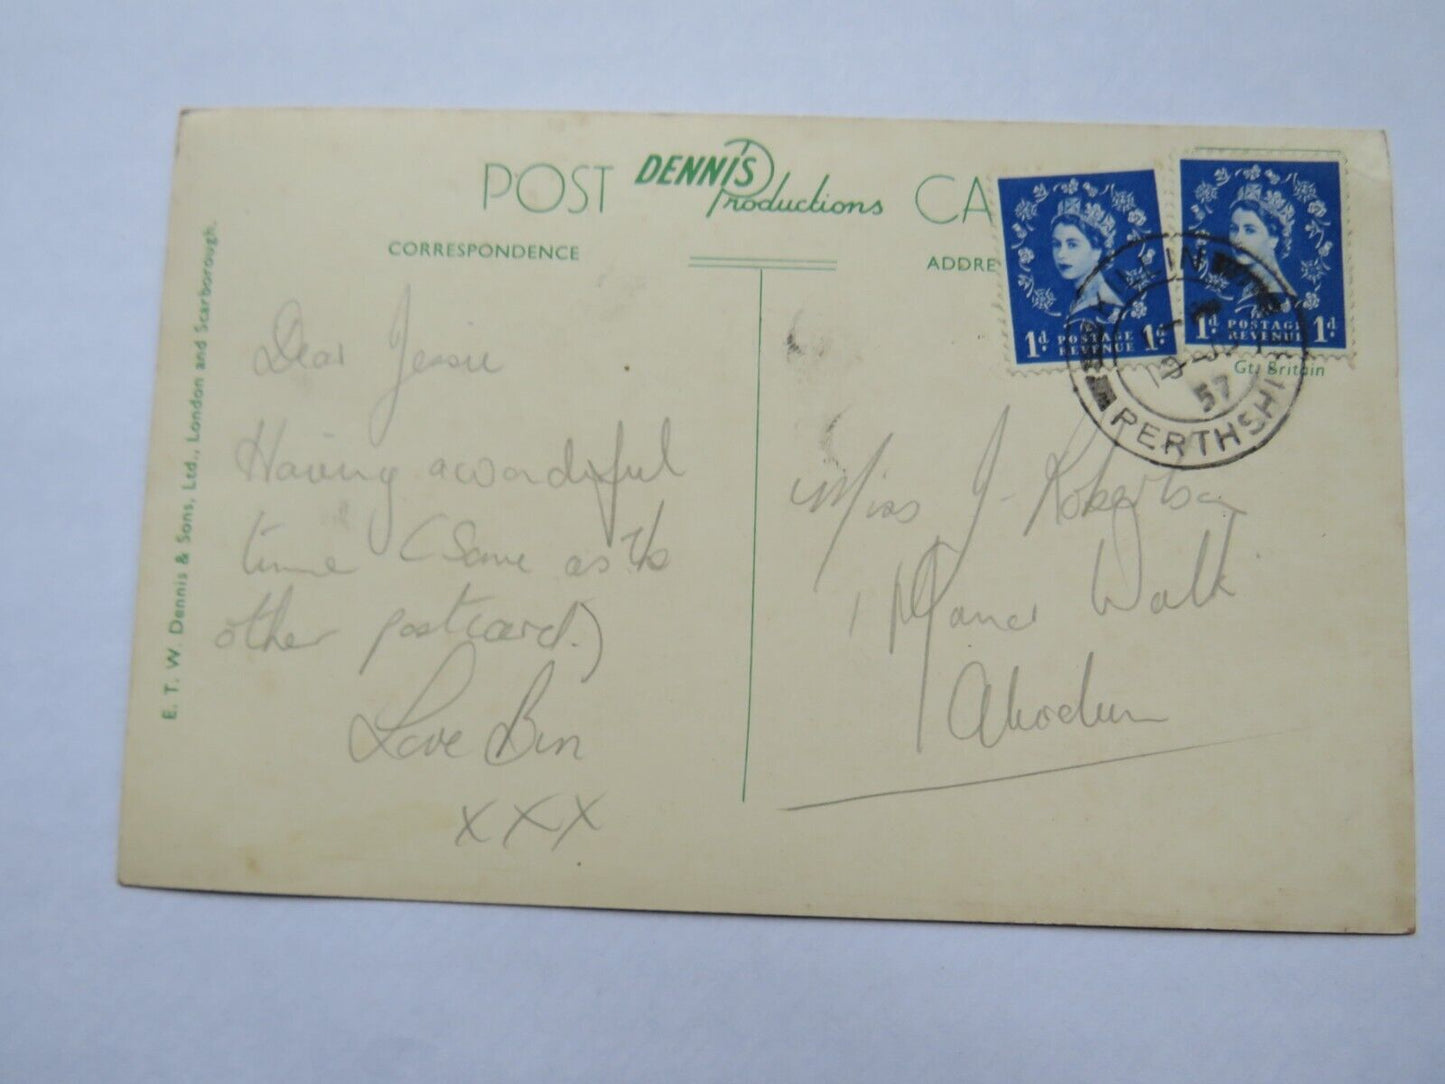 POST DENNIS Productions CA
CORRESPONDENCE
ADDRE
1d POSTAGE REVENUE 1d
1d POSTAGE REVENUE 1d
Gt. Britain
KILLIN
19 JU 57
PERTHSHI
E. T. W. Dennis & Sons, Ltd., London and Scarborough.
Dear Jessie
Having a wonderful
time (Same as the
other postcard.)
Love Ben
xxx
Miss J. Robertson
1 Manor Walk
Aberdeen